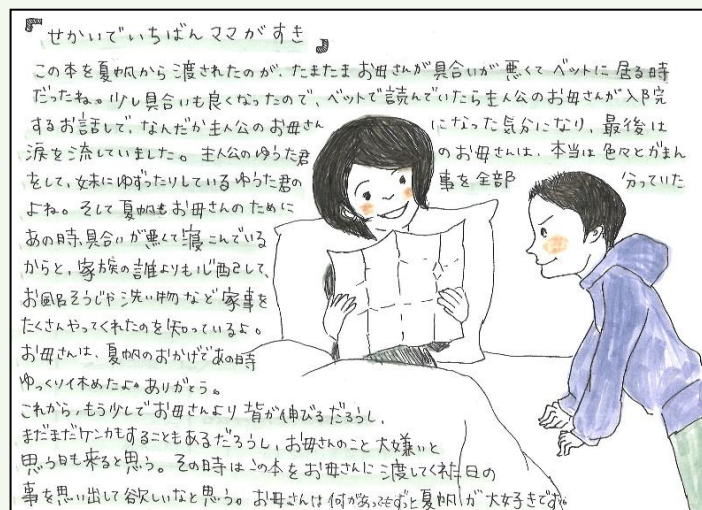 『せかいでいちばんママがすき』
この本を夏帆から渡されたのが、たまたまお母さんが具合いが悪くてベットに居る時
だったね。少し具合いも良くなったので、ベットで読んでいたら主人公のお母さんが入院
するお話しで、なんだか主人公のお母さんになった気分になり、最後は
涙を流していました。主人公のゆうた君のお母さんは、本当は色々とがまん
をして、妹にゆずったりしているゆうた君の事を全部分っていた
よね。そして夏帆もお母さんのために
あの時、具合いが悪くて寝こんでいる
からと、家族の誰よりも心配して、
お風呂そうじや洗い物など家事を
たくさんやってくれたのを知っているよ。
お母さんは、夏帆のおかげであの時
ゆっくり休めたよ。ありがとう。
これから、もう少しでお母さんより背が伸びるだろうし、
まだまだケンカもすることもあるだろうし、お母さんのこと大嫌いと
思う日も来ると思う。その時はこの本をお母さんに渡してくれた日の
事を思い出して欲しいなと思う。お母さんは何があってもずっと夏帆が大好きですよ